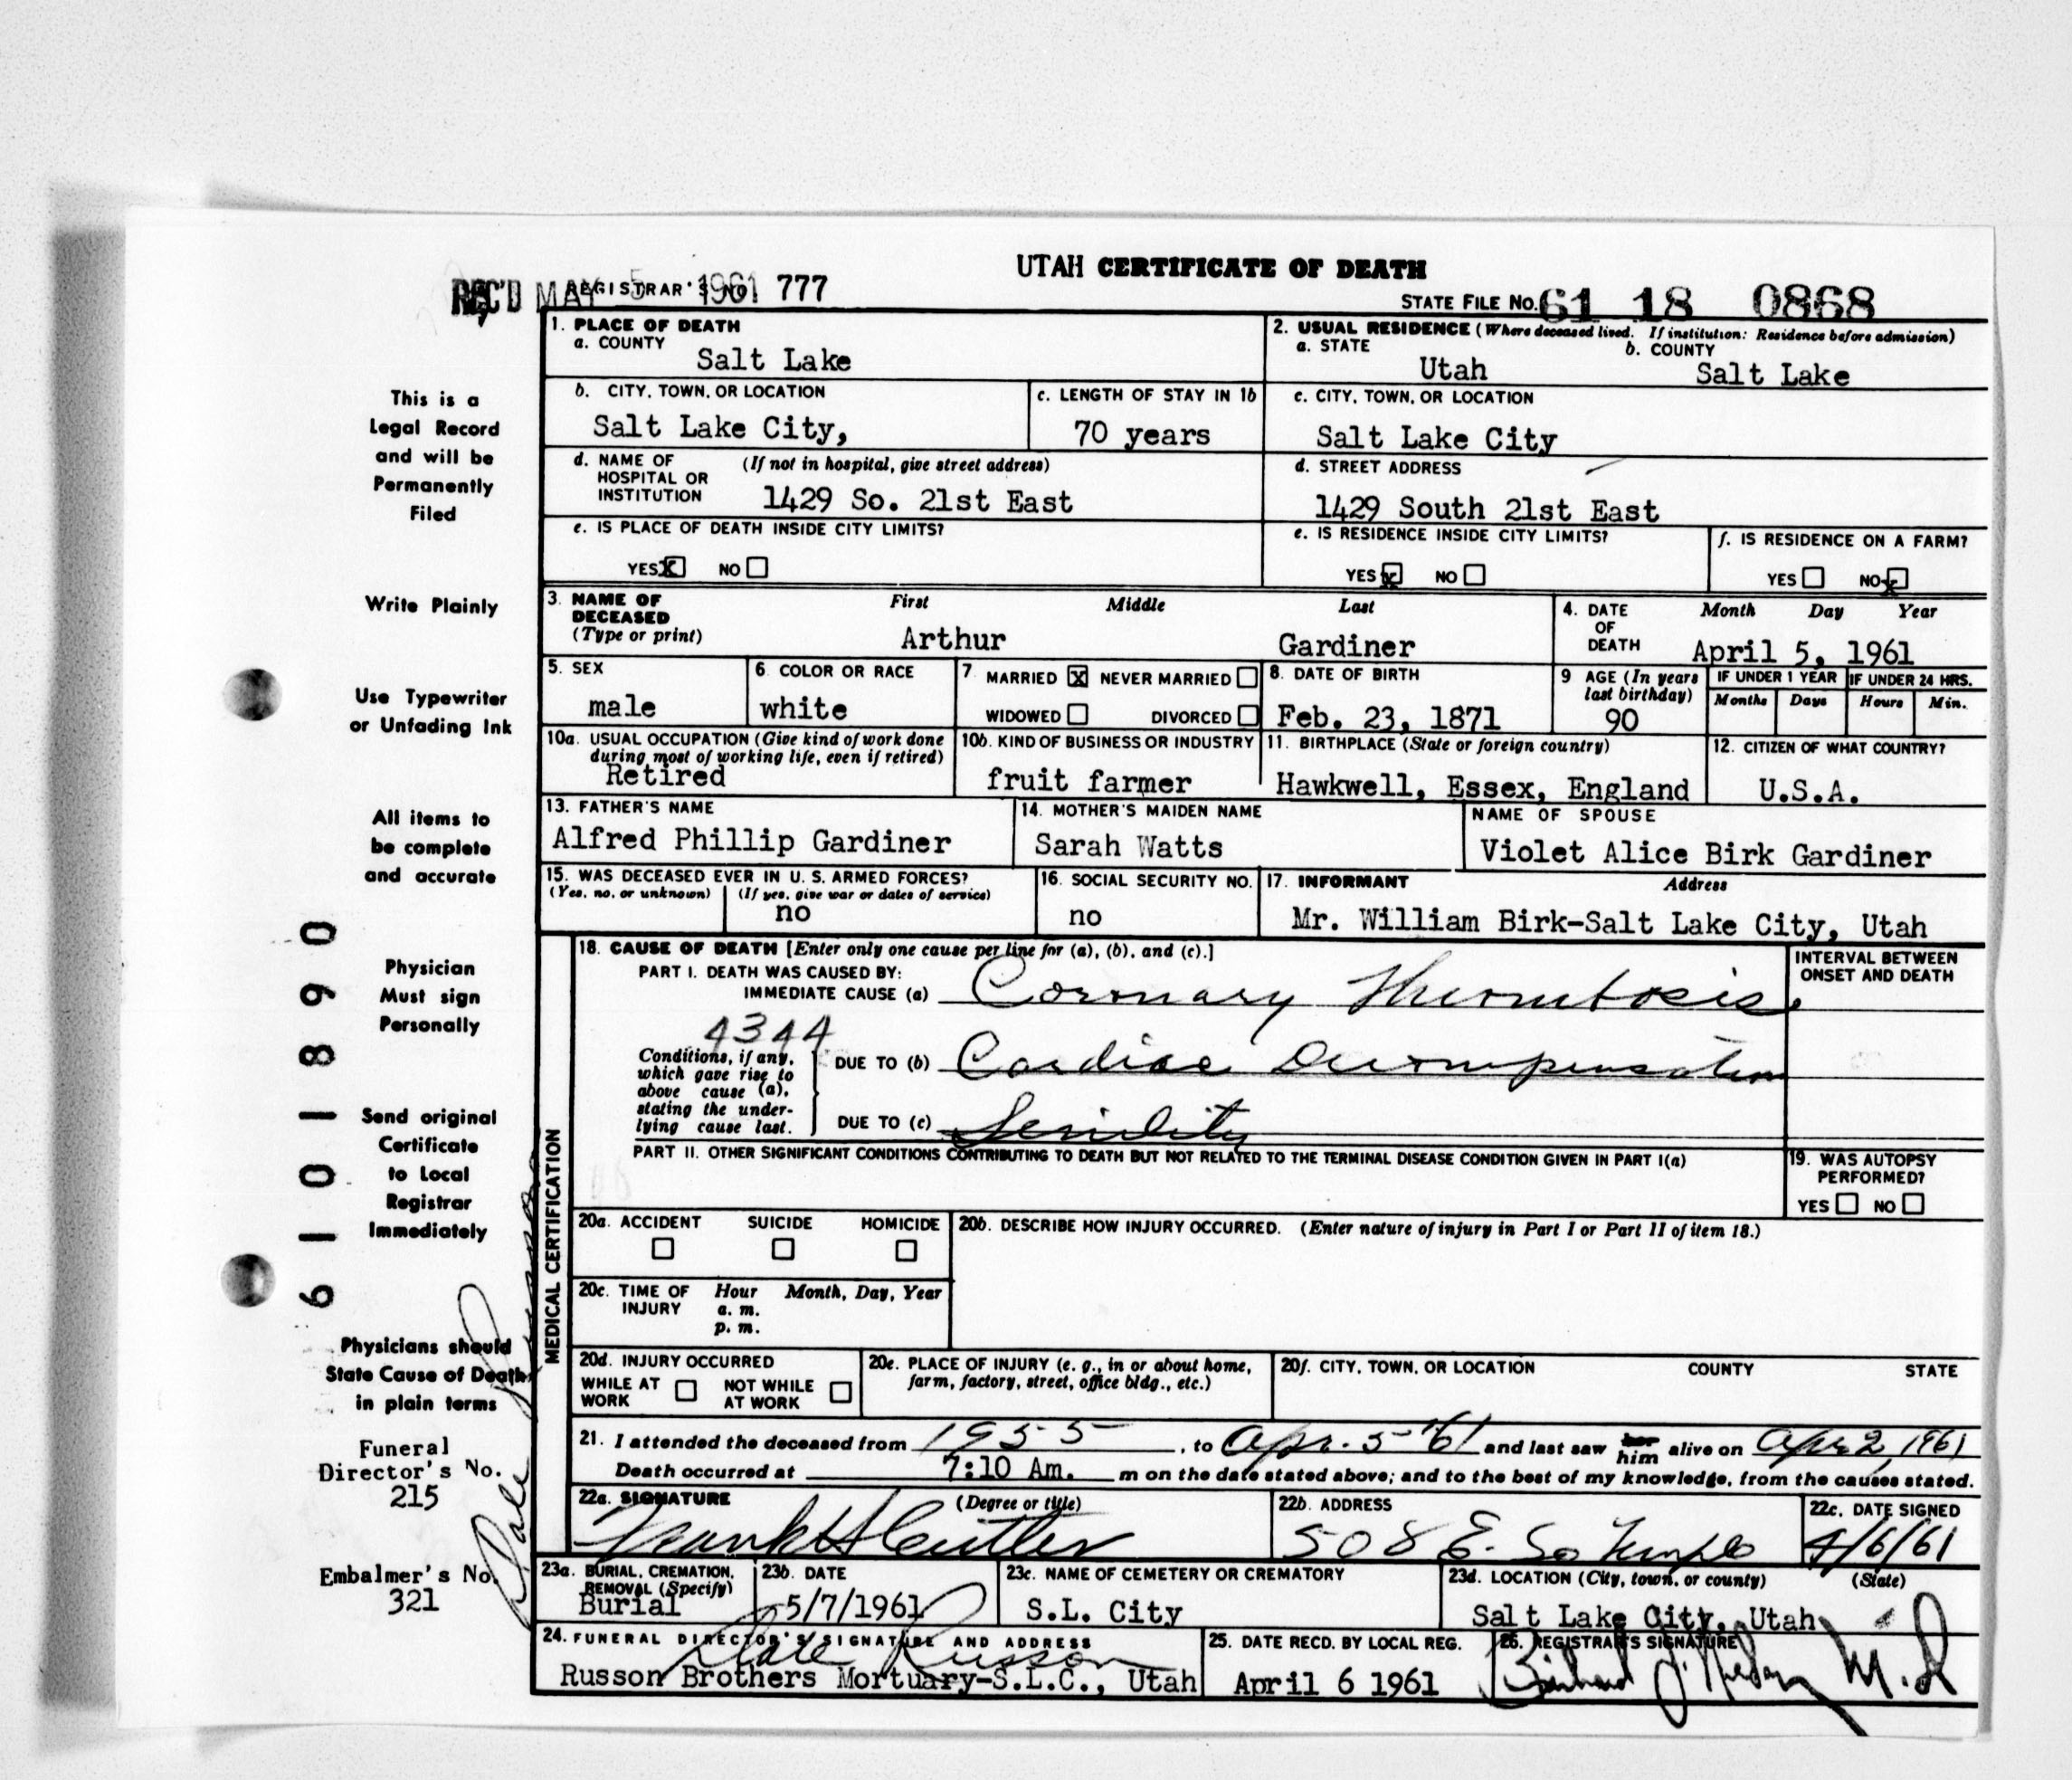 UTAH CERTIFICATE OF DEATH
REC'D MAY 5 1961 REGISTRAR'S NO. 777
STATE FILE NO. 61 18 0868
1. PLACE OF DEATH
a. COUNTY
Salt Lake
2. USUAL RESIDENCE (Where deceased lived. If institution: Residence before admission)
a. STATE b. COUNTY
Utah Salt Lake
b. CITY, TOWN, OR LOCATION
Salt Lake City,
c. LENGTH OF STAY IN 1b
70 years
c. CITY, TOWN, OR LOCATION
Salt Lake City
d. NAME OF HOSPITAL OR INSTITUTION (If not in hospital, give street address)
1429 So. 21st East
d. STREET ADDRESS
1429 South 21st East
e. IS PLACE OF DEATH INSIDE CITY LIMITS?
YES X NO
e. IS RESIDENCE INSIDE CITY LIMITS?
YES X NO
f. IS RESIDENCE ON A FARM?
YES NO X
3. NAME OF DECEASED (Type or print)
First Middle Last
Arthur Gardiner
4. DATE OF DEATH Month Day Year
April 5, 1961
5. SEX
male
6. COLOR OR RACE
white
7. MARRIED X NEVER MARRIED
WIDOWED DIVORCED
8. DATE OF BIRTH
Feb. 23, 1871
9 AGE (In years last birthday)
90
IF UNDER 1 YEAR IF UNDER 24 HRS.
Months Days Hours Min.
10a. USUAL OCCUPATION (Give kind of work done during most of working life, even if retired)
Retired
10b. KIND OF BUSINESS OR INDUSTRY
fruit farmer
11. BIRTHPLACE (State or foreign country)
Hawkwell, Essex, England
12. CITIZEN OF WHAT COUNTRY?
U.S.A.
13. FATHER'S NAME
Alfred Phillip Gardiner
14. MOTHER'S MAIDEN NAME
Sarah Watts
NAME OF SPOUSE
Violet Alice Birk Gardiner
15. WAS DECEASED EVER IN U. S. ARMED FORCES?
(Yes, no, or unknown) (If yes, give war or dates of service)
no
16. SOCIAL SECURITY NO.
no
17. INFORMANT Address
Mr. William Birk-Salt Lake City, Utah
MEDICAL CERTIFICATION
18. CAUSE OF DEATH [Enter only one cause per line for (a), (b), and (c).]
PART I. DEATH WAS CAUSED BY:
IMMEDIATE CAUSE (a) Coronary Thrombosis
INTERVAL BETWEEN ONSET AND DEATH
4344
Conditions, if any, which gave rise to above cause (a), stating the underlying cause last.
DUE TO (b) Cardiac Decompensation
DUE TO (c) Senility
PART II. OTHER SIGNIFICANT CONDITIONS CONTRIBUTING TO DEATH BUT NOT RELATED TO THE TERMINAL DISEASE CONDITION GIVEN IN PART I(a)
19. WAS AUTOPSY PERFORMED?
YES NO
20a. ACCIDENT SUICIDE HOMICIDE
20b. DESCRIBE HOW INJURY OCCURRED. (Enter nature of injury in Part I or Part II of item 18.)
20c. TIME OF INJURY Hour Month, Day, Year
a. m.
p. m.
20d. INJURY OCCURRED
WHILE AT WORK NOT WHILE AT WORK
20e. PLACE OF INJURY (e. g., in or about home, farm, factory, street, office bldg., etc.)
20f. CITY, TOWN, OR LOCATION COUNTY STATE
21. I attended the deceased from 1955, to Apr. 5-'61 and last saw her him alive on Apr 2, 1961
Death occurred at 7:10 Am. m on the date stated above; and to the best of my knowledge, from the causes stated.
22a. SIGNATURE (Degree or title)
Frank H Cutler
22b. ADDRESS
508 E. So Temple
22c. DATE SIGNED
4/6/61
23a. BURIAL, CREMATION, REMOVAL (Specify)
Burial
23b. DATE
5/7/1961
23c. NAME OF CEMETERY OR CREMATORY
S.L. City
23d. LOCATION (City, town, or county) (State)
Salt Lake City, Utah
24. FUNERAL DIRECTOR'S SIGNATURE AND ADDRESS
Dale Russon
Russon Brothers Mortuary-S.L.C., Utah
25. DATE RECD. BY LOCAL REG.
April 6 1961
26. REGISTRAR'S SIGNATURE
M.D
This is a
Legal Record
and will be
Permanently
Filed
Write Plainly
Use Typewriter
or Unfading Ink
All items to
be complete
and accurate
Physician
Must sign
Personally
Send original
Certificate
to Local
Registrar
Immediately
Physicians should
State Cause of Death
in plain terms
Funeral
Director's No.
215
Embalmer's No.
321
Dale Russon
6101890